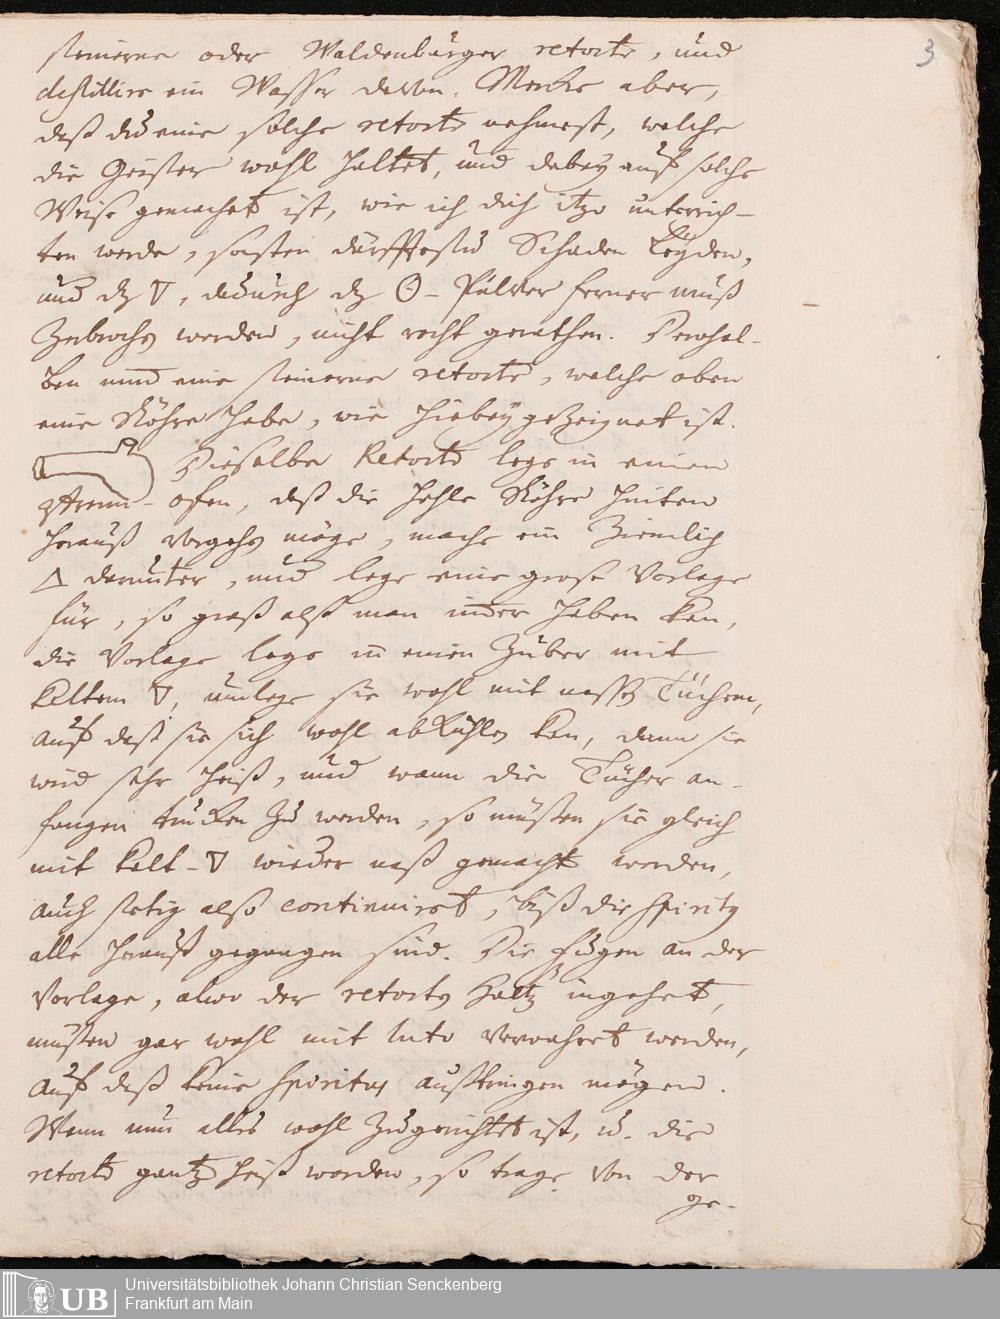 3
steinerne oder Waldenburger retorte, und
destillire ein Wasser davon. Mercke aber,
daß du eine solche retorte nehmest, welche
die Geister wohl haltet, und dabey auf solche
Weise gemachet ist, wie ich dich itzo unterrich-
ten werde, sonsten dürfftestu Schaden leyden,
und dz 🜄, dadurch dz 🜔- Pulver ferner muß
Zubrochen werden, nicht recht gerathen. Derohal-
ben nimd eine steinerne retorte, welche oben
eine Röhre habe, wie hiebey gezeignet ist.
Dieselbe Retorte lege in einen
ofen, daß die hohle Röhre hinten
herauß gehen möge, mache ein Ziemlich
🜂 darunter, und lege eine große Vorlage
für, so groß alß man immer haben kan,
die Vorlage lege in einen Zuber mit
kaltem 🜄, umlege sie wohl mit nassen Tüchern,
auf daß sie sich wohl abkühlen kan, dann sie
wird sehr heiß, und wann die Tücher an-
fangen trucken zu werden, so müßen sie gleich
mit kalt-🜄 wieder naß gemacht werden,
auch stetig also continuiret, biß die spiritus
alle herauß gegangen sind. Die Fugen an der
Vorlage, alwo der retorten Halß ingehet,
müßen gar wohl mit luto verwahret werden,
auf daß keine spiritus außtringen mögen.
Wenn nun alles wohl zugerichtet ist, u. die
retorte gantz heiß worden, so trage von der
ge-
UB
Universitätsbibliothek Johann Christian Senckenberg
Frankfurt am Main